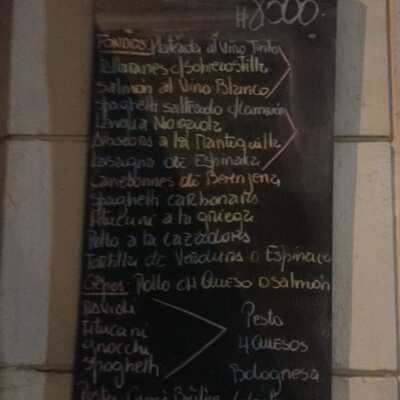 #8500.
Fondos: Plateada al Vino Tinto
Tallarines c/sobrecostilla
Salmon al Vino Blanco
Spaghetti salteado c/camarón
Lengua Nogada
a la Mantequilla
Lasagna de Espinaca
Canelonnes de Berenjena
Spaghetti carbonara
Fitucani a la griega
Pollo a la cazadora
Tortilla de Verduras o Espinaca
Crepes: Pollo ch Queso o Salmón
Ravioli
Fitucani
gnocchi
Spaghetti
Pesto
4 Quesos
Bolognesa